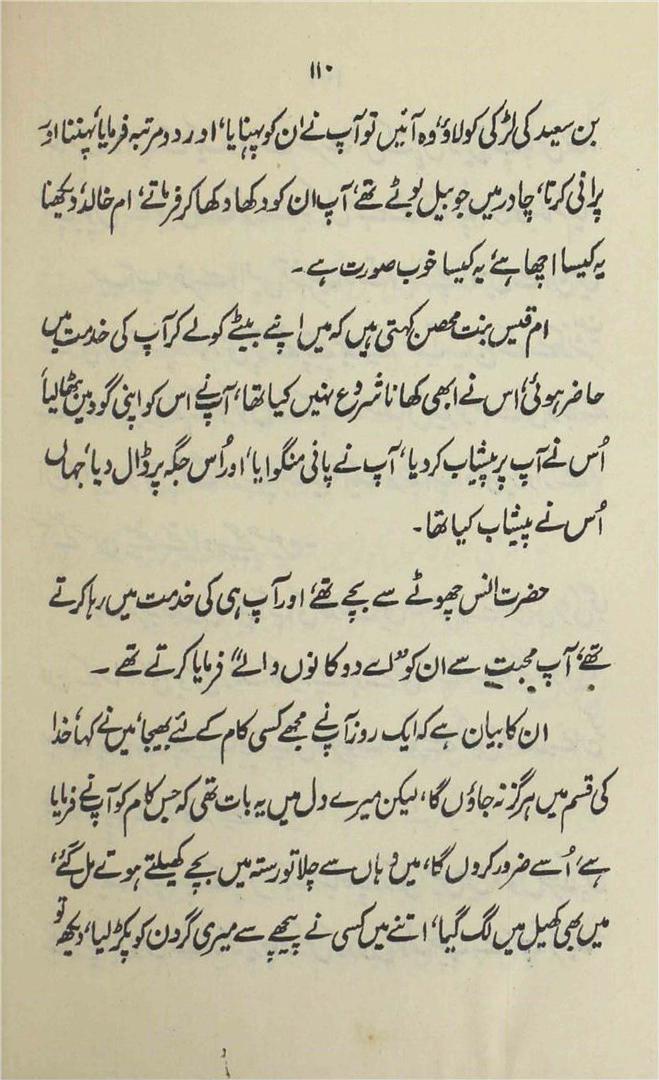 ۱۱۰
بن سعید کی لڑکی کو لاؤ، وہ آئیں تو آپ نے ان کو پہنایا، اور دو مرتبہ فرمایا، پہننا اور
پرانی کرنا، چادر میں جو بیل بوٹے تھے، آپ ان کو دکھا دکھا کر فرماتے، ام خالد، دیکھنا
یہ کیسا اچھا ہے، یہ کیسا خوب صورت ہے۔
ام قیس بنت محصن کہتی ہیں کہ میں اپنے بیٹے کو لے کر آپ کی خدمت میں
حاضر ہوئی، اس نے ابھی کھانا شروع نہیں کیا تھا، آپ نے اس کو اپنی گود میں بٹھا لیا،
اُس نے آپ پر پیشاب کر دیا، آپ نے پانی منگوایا، اور اُس جگہ پر ڈال دیا، جہاں
اُس نے پیشاب کیا تھا۔
حضرت انس چھوٹے سے بچے تھے، اور آپ ہی کی خدمت میں رہا کرتے
تھے، آپ محبت سے ان کو "اے دو کانوں والے" فرمایا کرتے تھے۔
ان کا بیان ہے کہ ایک روز آپ نے مجھے کسی کام کے لئے بھیجا، میں نے کہا، خدا
کی قسم میں ہرگز نہ جاؤں گا، لیکن میرے دل میں یہ بات تھی کہ جس کام کو آپ نے فرمایا
ہے، اُسے ضرور کروں گا، میں وہاں سے چلا تو رستہ میں بچے کھیلتے ہوئے مل گئے،
میں بھی کھیل میں لگ گیا، اتنے میں کسی نے پیچھے سے میری گردن کو پکڑ لیا، دیکھ تو